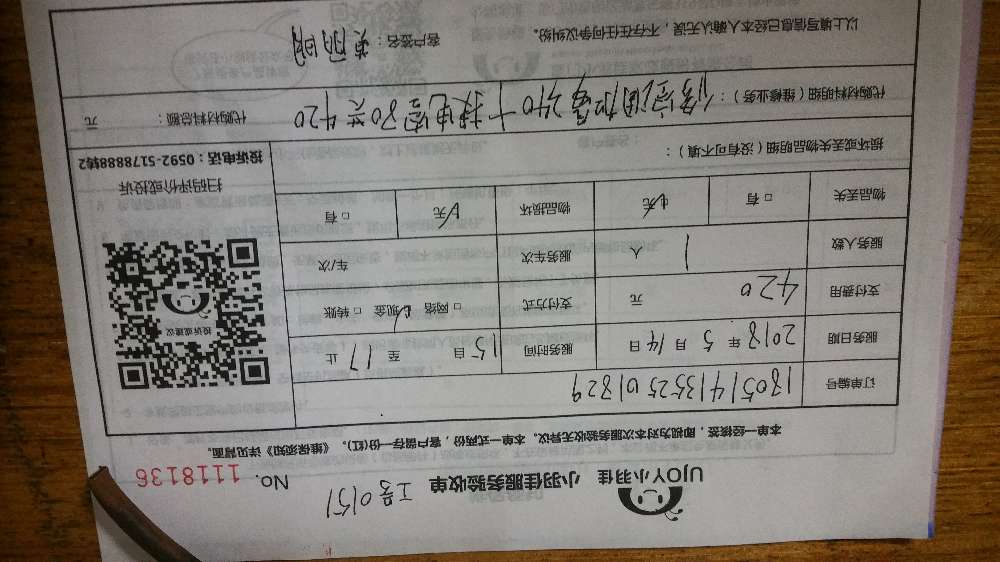 UJOY小羽佳 小羽佳服务验收单 工号0151 No. 1118136
本单一经接签，即视为对本次服务验收无异议。本单一式两份，客户留存一份(红)。《维保须知》详见背面。
订单编号 18051413525201829
服务日期 2018 年 5 月 14 日 服务时间 15 自 至 17 止
支付费用 420 元 支付方式 □ 网络 现金 □ 转账
服务人数 1 人 服务车次 车/次
物品丢失 □ 有 无 物品损坏 □ 有 无
投诉或建议
扫码评价或投诉
投诉电话：0592-5178888转2
损坏或丢失物品明细（没有可不填）：
代购材料明细（维修业务）： 240 420 代购材料总额： 元
以上填写信息已经本人确认无误，不存在任何争议纠纷。 客户签名：